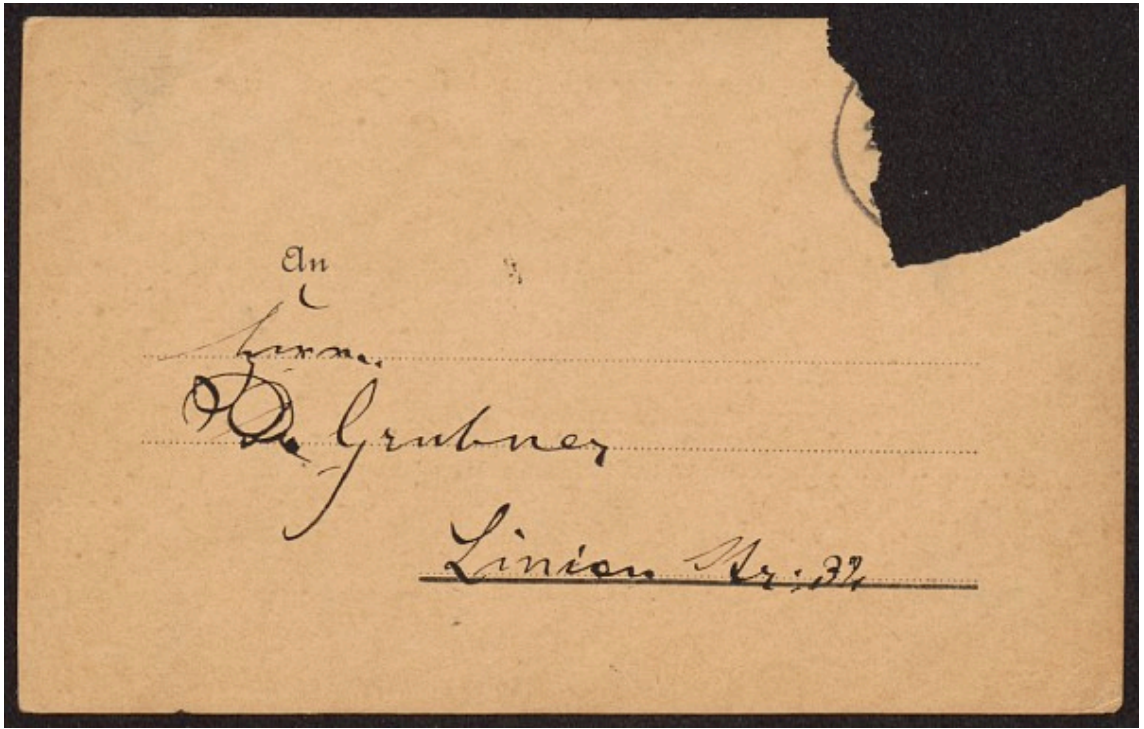 An
Herrn.
Dr. Grubner
Linien Str: 32